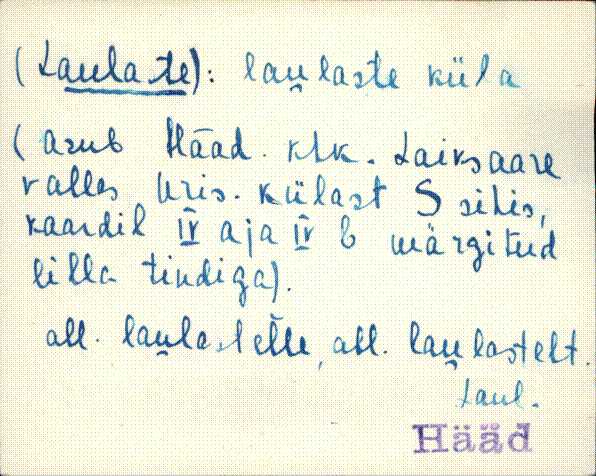 (Laulaste): lau̯laste küla
(asub Hääd. khk. Laiksaare
vallas Uris. külast S sihis,
kaardil IV aja IV b märgitud
lilla tindiga).
all. lau̯lastelle, abl. lau̯lastelt.
Laul.
Hääd